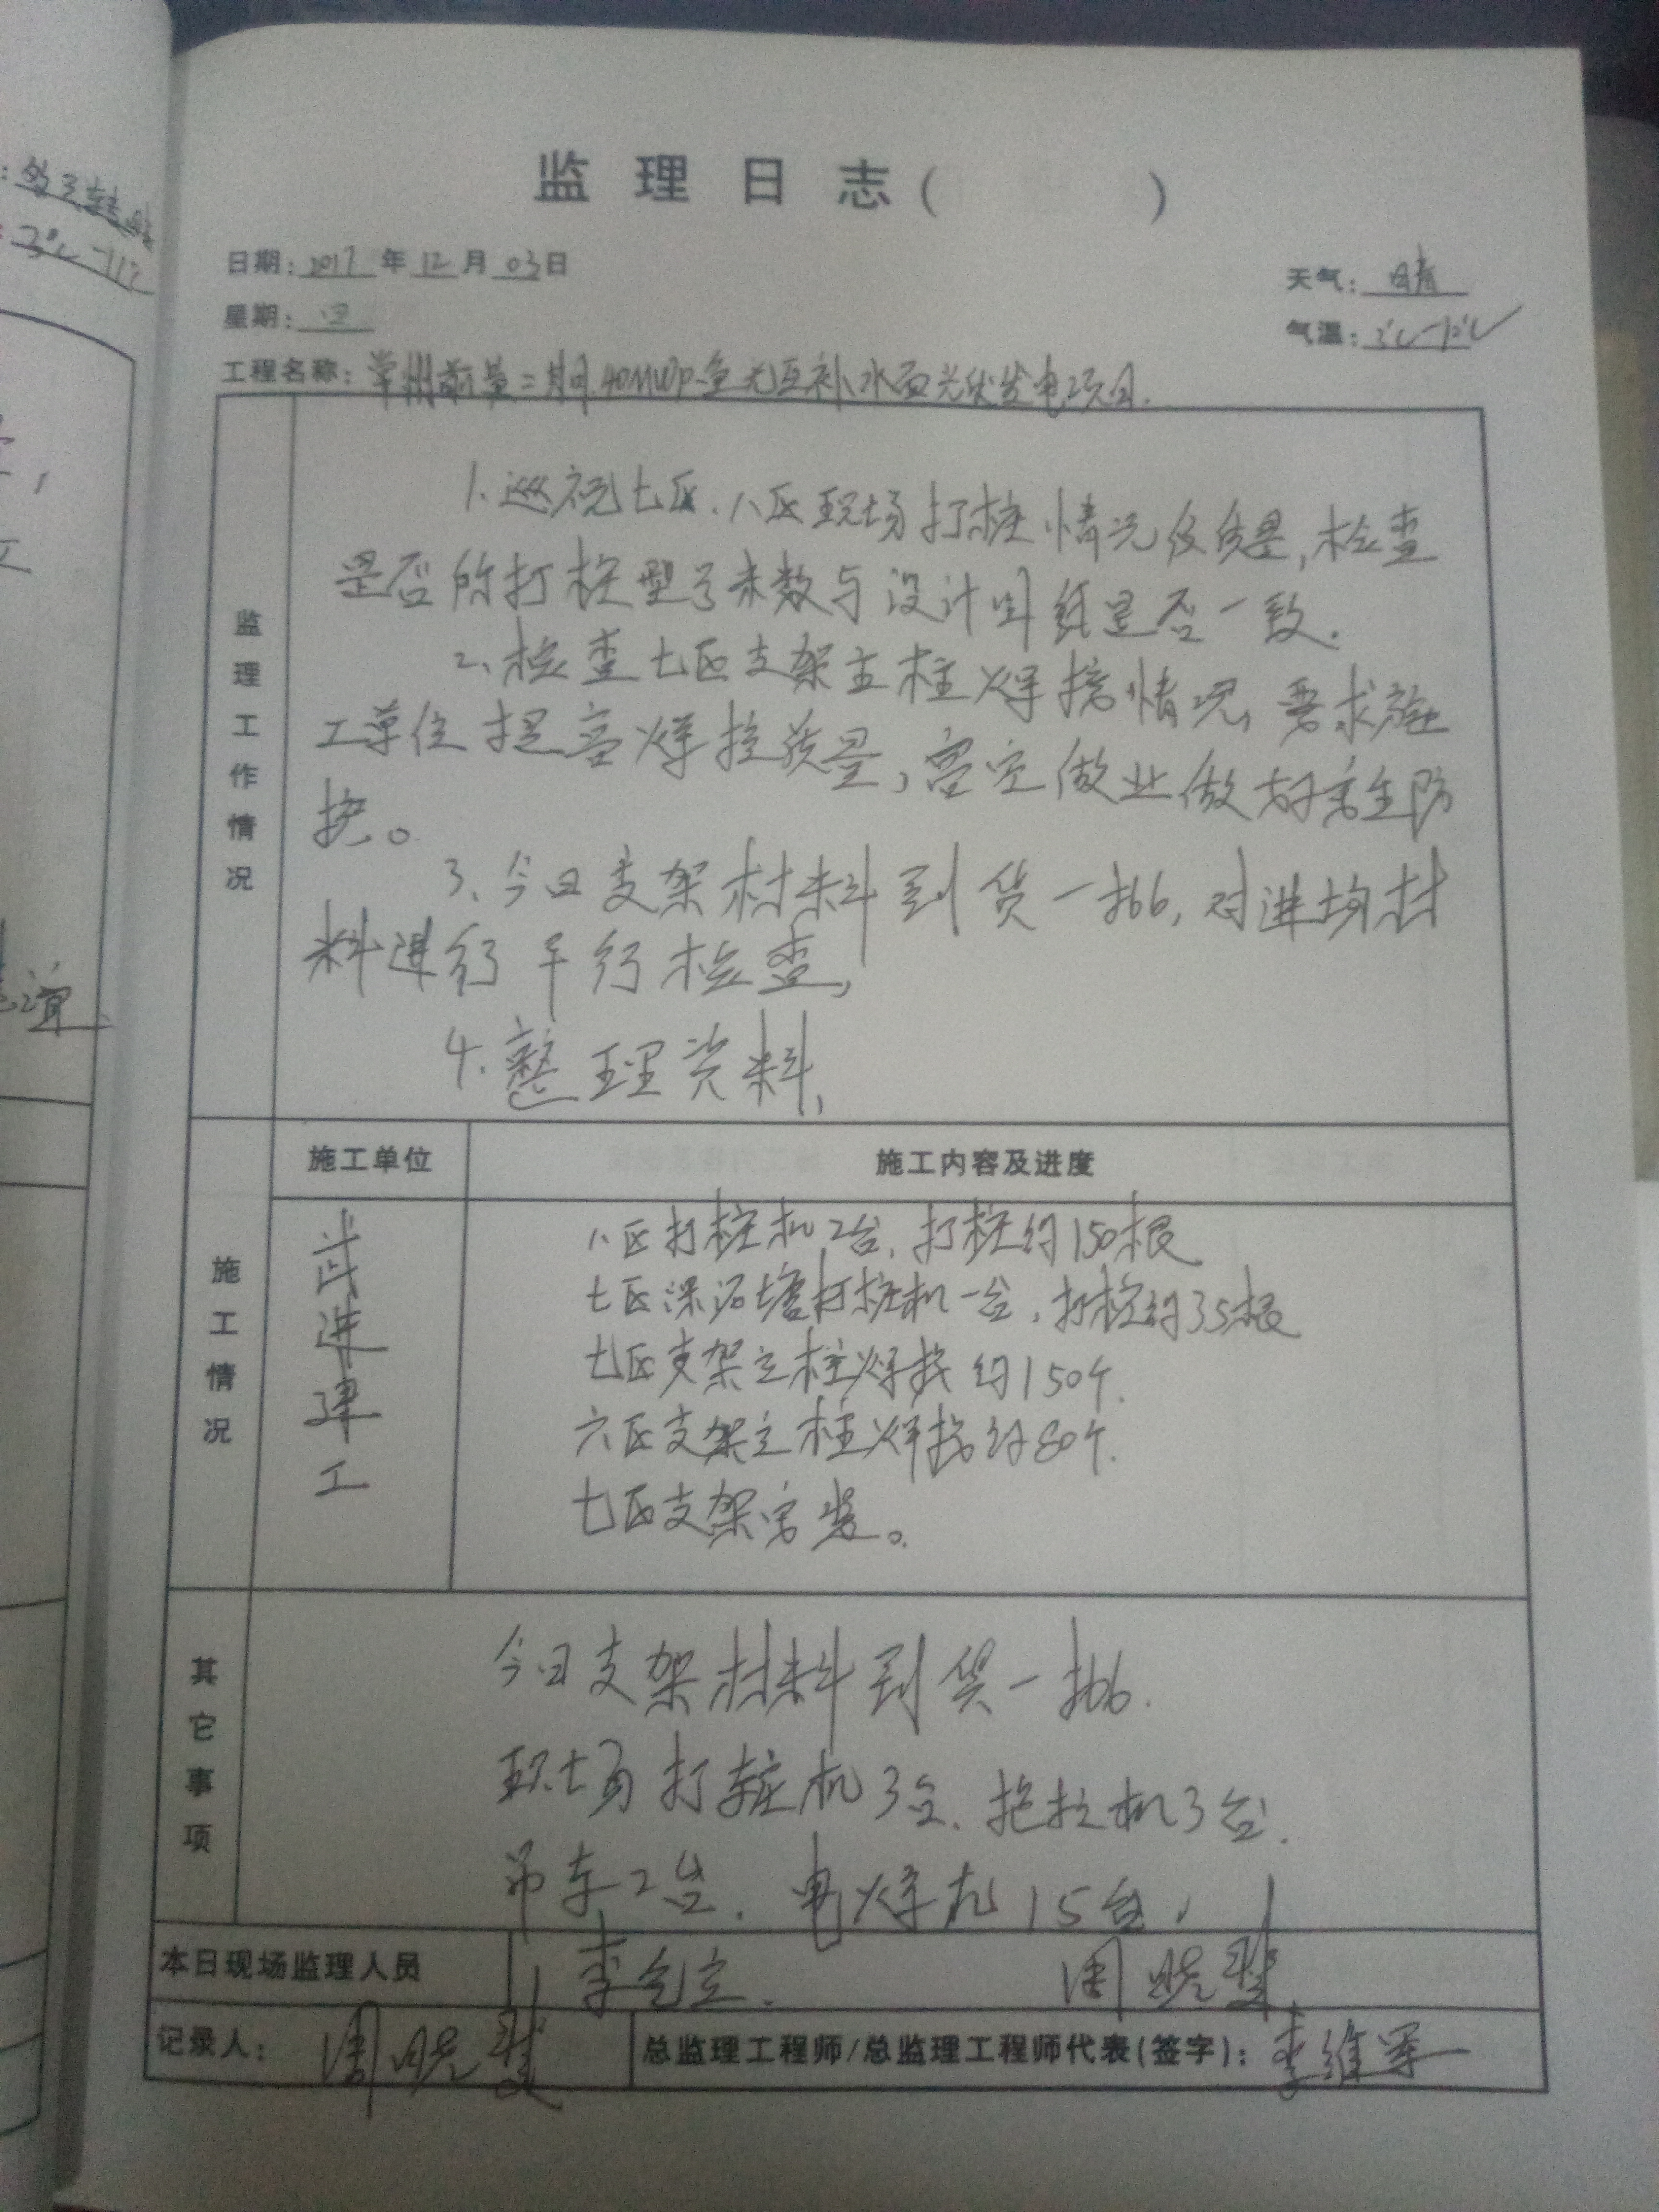 监理日志（ ）
日期：2017年12月03日
天气：晴
星期：四
气温：3℃-12℃
工程名称：常州前黄二期40MWp渔光互补水面光伏发电项目.
监理工作情况
1、巡视七区、八区现场打桩情况及质量,检查
是否所打桩型号米数与设计图纸是否一致.
2、检查七区支架立柱焊接情况,要求施
工单位提高焊接质量,高空做业做好安全防
护。
3、今日支架材料到货一批,对进场材
料进行平行检查,
4、整理资料,
施工情况
施工单位
施工内容及进度
武进建工
八区打桩机2台,打桩约150根
七区深泥塘打桩机一台,打桩约35根
七区支架立柱焊接约150个.
六区支架立柱焊接约80个.
七区支架安装。
其它事项
今日支架材料到货一批.
现场打桩机3台、拖拉机3台.
吊车2台、电焊机15台,
本日现场监理人员
李
周晓
记录人：周晓
总监理工程师/总监理工程师代表(签字)：李维军